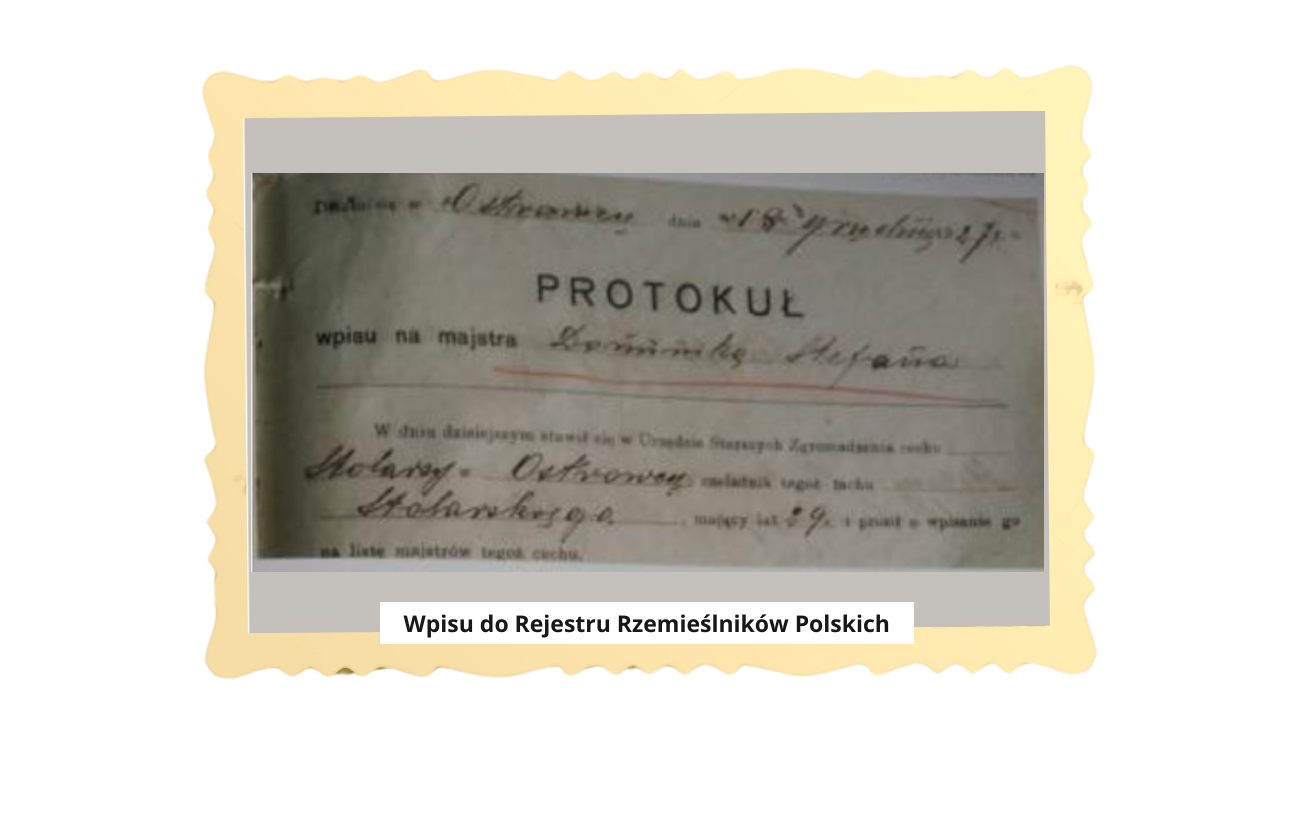 Działo się w Ostrowcu dnia 18 grudnia 27 r.
PROTOKUŁ
wpisu na majstra Dominika Stefana
W dniu dzisiejszym stawił się w Urzędzie Starszych Zgromadzenia cechu
Stolarzy Ostrowcu czeladnik tegoż fachu
Stolarskiego, mający lat 29 i prosił o wpisanie go
na listę majstrów tegoż cechu.
Wpisu do Rejestru Rzemieślników Polskich